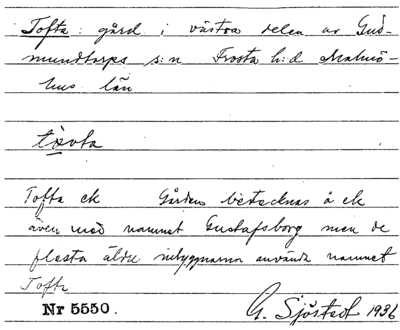 Tofta : gård i västra delen av Gud-
mundtorps s:n Frosta h:d Malmö-
hus län
tòvta
Tofta ek Gården betecknas å ek
även med namnet Gustafsborg men de
flesta äldre inbyggarna använda namnet
Tofta
Nr 5550. G. Sjöstedt 1936